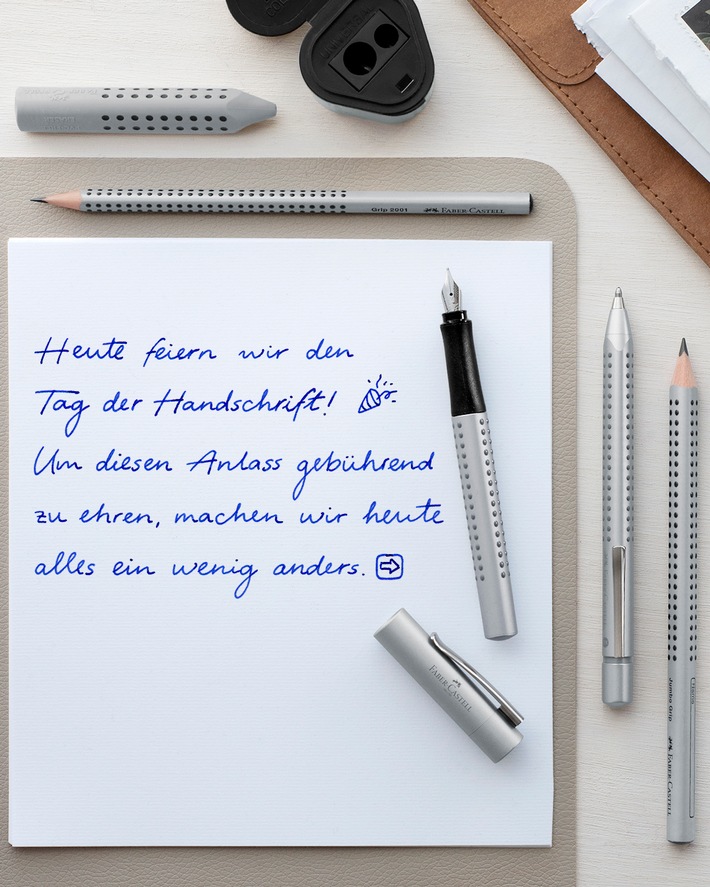 Grip 2001 FABER-CASTELL
Heute feiern wir den
Tag der Handschrift! 🎉
Um diesen Anlass gebührend
zu ehren, machen wir heute
alles ein wenig anders. ➡
FABER-CASTELL
Jumbo Grip FABER-CASTELL